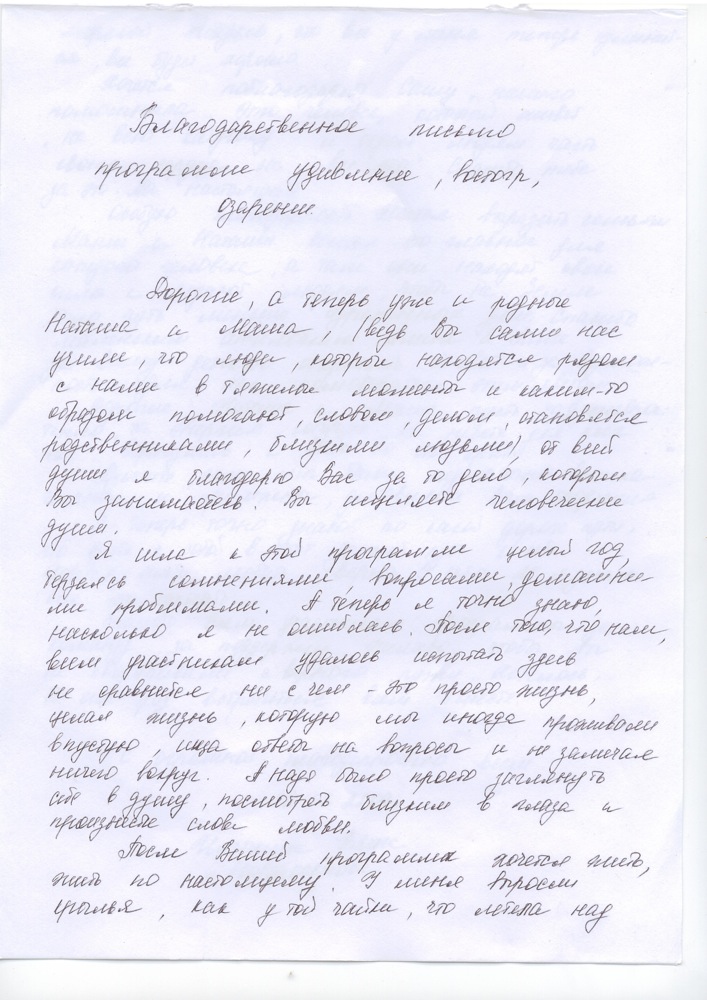 Благодарственное письмо
программе удивление, восторг,
озарение.
Дорогие, а теперь уже и родные
Наташа и Маша, (ведь Вы сами нас
учили, что люди, которые находятся рядом
с нами в тяжелые моменты и каким-то
образом помогают, словом, делом, становятся
родственниками, близкими людьми), от всей
души я благодарю Вас за то дело, которым
Вы занимаетесь. Вы исцеляете человеческие
души.
Я шла к этой программе целый год,
терзаясь сомнениями вопросами, домашни
ми проблемами. А теперь я точно знаю,
насколько я не ошиблась. После того, что нам,
всем участникам удалось испытать здесь
не сравнится ни с чем - это просто жизнь,
целая жизнь, которую мы иногда проживали
впустую, ища ответы на вопросы и не замечая
ничего вокруг. А надо было просто заглянуть
себе в душу, посмотреть близким в глаза и
произнести слова любви.
После Вашей программы хочется жить,
жить по настоящему. У меня выросли
крылья, как у той чайки, что летела над